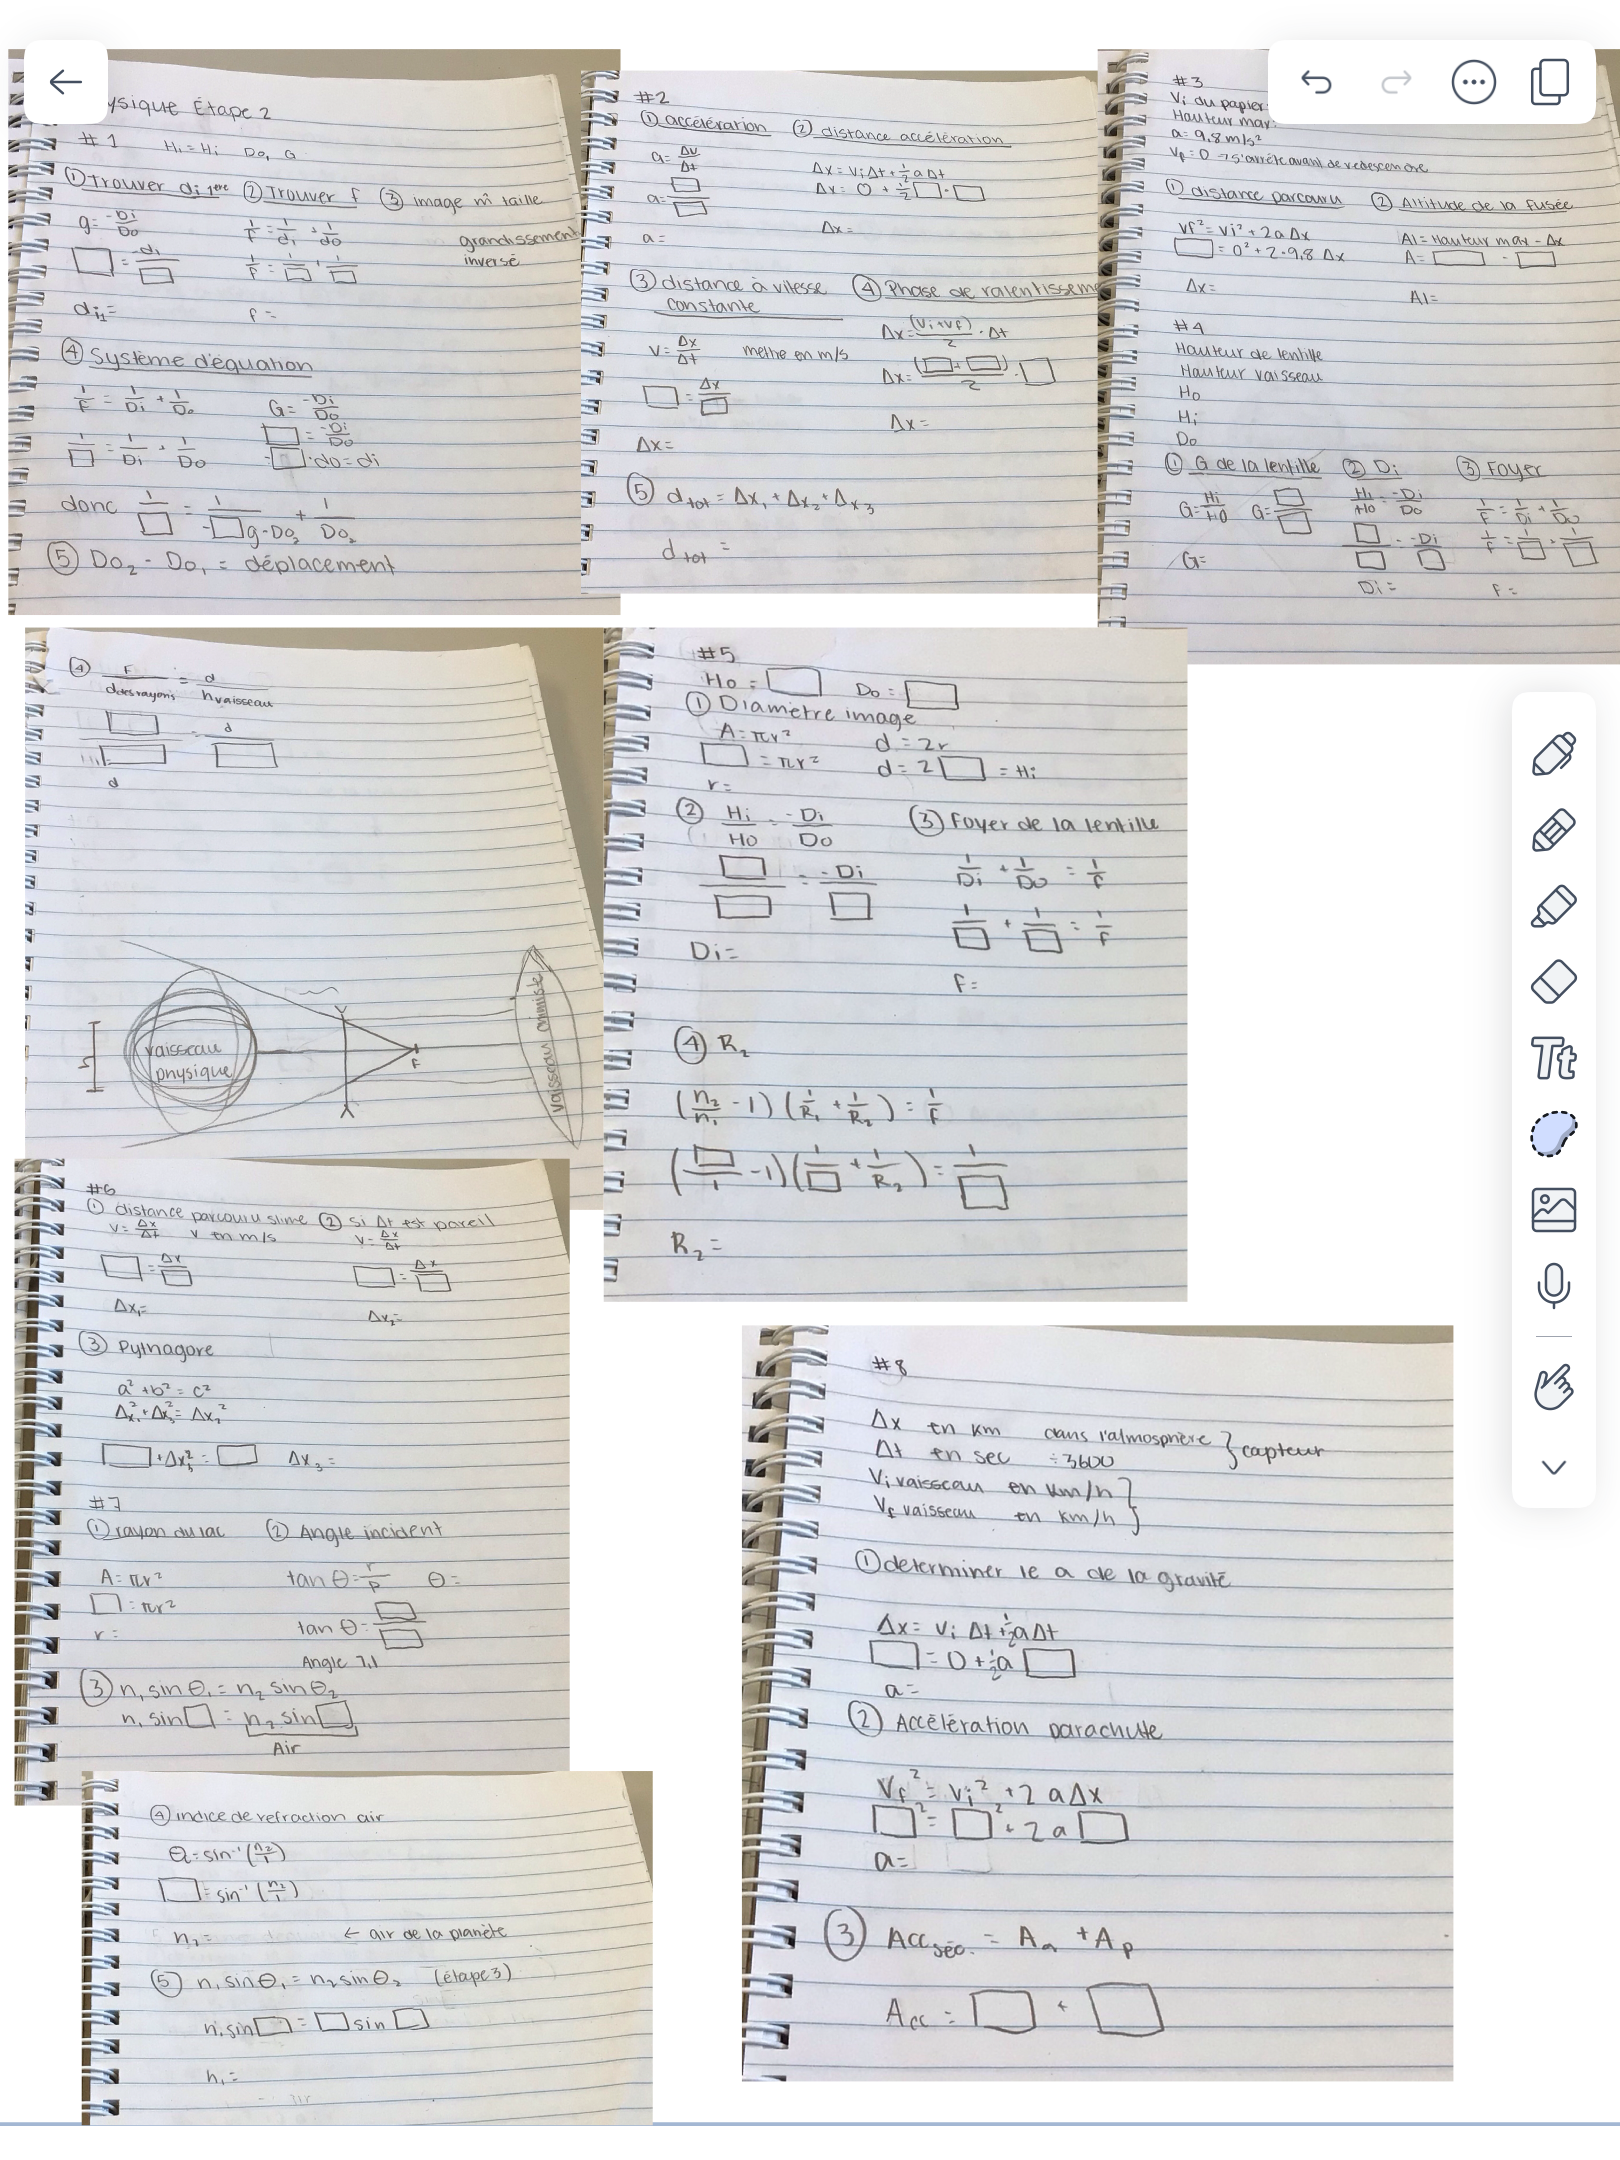 ysique Étape 2
#1 Hi=Hi Do, G
① Trouver di 1ère ② Trouver f ③ image m̂ taille
g = -Di/Do 1/F = 1/di + 1/do grandissement
□ = -di/□ 1/F = 1/□ + 1/□ inversé
di₁= f=
④ Système d'équation
1/F = 1/Di + 1/Do G = -Di/Do
1/□ = 1/Di + 1/Do □ = -Di/Do
-□·do = di
donc 1/□ = 1/-□g·Do₂ + 1/Do₂
⑤ Do₂ - Do₁ = déplacement
#2
① accélération ② distance accélération
a = Δv/Δt Δx = viΔt + ½aΔt
a = □/□ Δx = 0 + ½□·□
a= Δx=
③ distance à vitesse constante ④ Phase de ralentisseme
v = Δx/Δt mettre en m/s Δx = (vi+vf)/2 · Δt
□ = Δx/□ Δx = (□+□)/2 · □
Δx= Δx=
⑤ d tot = Δx₁ + Δx₂ + Δx₃
d tot =
#3
Vi du papier
Hauteur max
a = 9,8 m/s²
Vf = 0 → s'arrête avant de redescendre
① distance parcouru ② Altitude de la fusée
vf² = vi² + 2aΔx Al = Hauteur max - Δx
□ = 0² + 2·9,8 Δx A = □ - □
Δx= Al=
#4
Hauteur de lentille
Hauteur vaisseau
Ho
Hi
Do
① G de la lentille ② Di ③ Foyer
G = Hi/Ho G = □/□ Hi/Ho = -Di/Do 1/F = 1/Di + 1/Do
□/□ = -Di/□ 1/F = 1/□ + 1/□
G= Di= F=
④ F/d des rayons = d/h vaisseau
□/□ = d/□
d
h
vaisseau physique
F
vaisseau animiste
#5
Ho = □ Do = □
① Diamètre image
A = πr² d = 2r
□ = πr² d = 2□ = Hi
r=
② Hi/Ho = -Di/Do ③ Foyer de la lentille
□/□ = -Di/□ 1/Di + 1/Do = 1/F
1/□ + 1/□ = 1/F
Di= F=
④ R₂
(n₂/n₁ - 1)(1/R₁ + 1/R₂) = 1/F
(□/1 - 1)(1/□ + 1/R₂) = 1/□
R₂=
#6
① distance parcouru slime ② si Δt est pareil
v = Δx/Δt v en m/s v = Δx/Δt
□ = Δx/□ □ = Δx/□
Δx₁= Δx₂=
③ Pythagore
a² + b² = c²
Δx₁² + Δx₃² = Δx₂²
□ + Δx₃² = □ Δx₃ =
#7
① rayon du lac ② Angle incident
A = πr² tan θ = r/p θ=
□ = πr²
r= tan θ = □/□
Angle 7,1
③ n₁ sin θ₁ = n₂ sin θ₂
n₁ sin□ = n₂ sin□
Air
④ indice de refraction air
θ = sin⁻¹(n₂/1)
□ = sin⁻¹(n₂/1)
n₂= ← air de la planète
⑤ n₁ sin θ₁ = n₂ sin θ₂ (étape 3)
n₁ sin□ = □ sin □
n₁=
#8
Δx en km dans l'atmosphère } capteur
Δt en sec ÷3600
Vi vaisseau en km/h }
Vf vaisseau en km/h
① determiner le a de la gravité
Δx = vi Δt + ½aΔt
□ = 0 + ½a □
a=
② Accélération parachute
Vf² = Vi² + 2aΔx
□² = □² + 2a□
a=
③ Acc séc. = Aa + Ap
Acc = □ + □
Tt